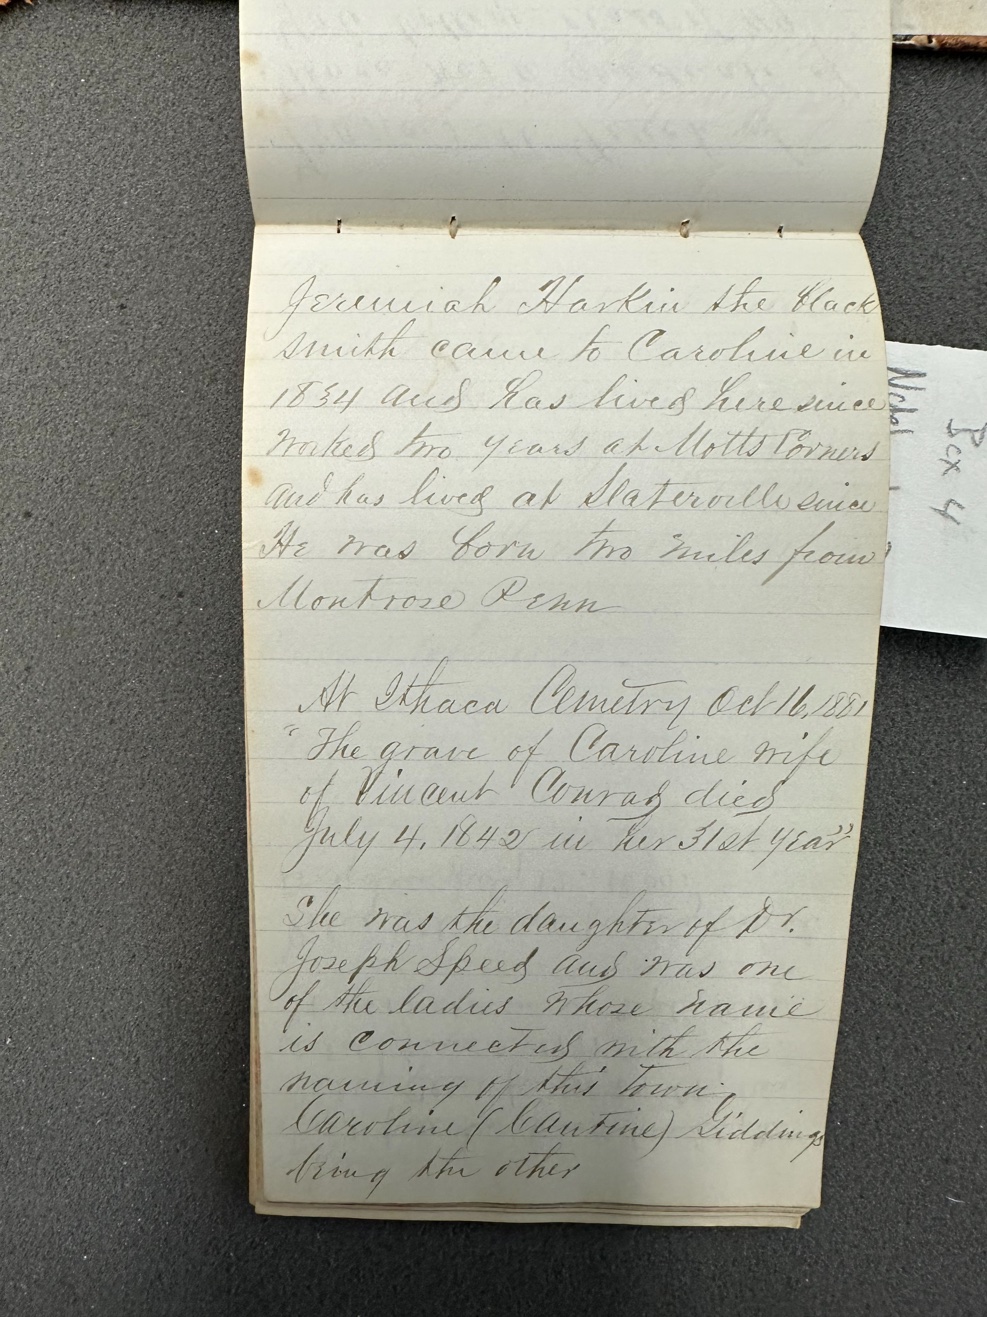 Jeremiah Harkin the black
smith came to Caroline in
1834 and has lived here since
worked two years at Motts Corners
and has lived at Slaterville since
He was born two miles from
Montrose Penn
At Ithaca Cemetry Oct 16, 1881
"The grave of Caroline wife
of Vincent Conrad died
July 4, 1842 in her 31st year"
She was the daughter of Dr.
Joseph Speed and was one
of the ladies whose name
is connected with the
naming of this town.
Caroline (Cantine) Giddings
being the other
Box 4